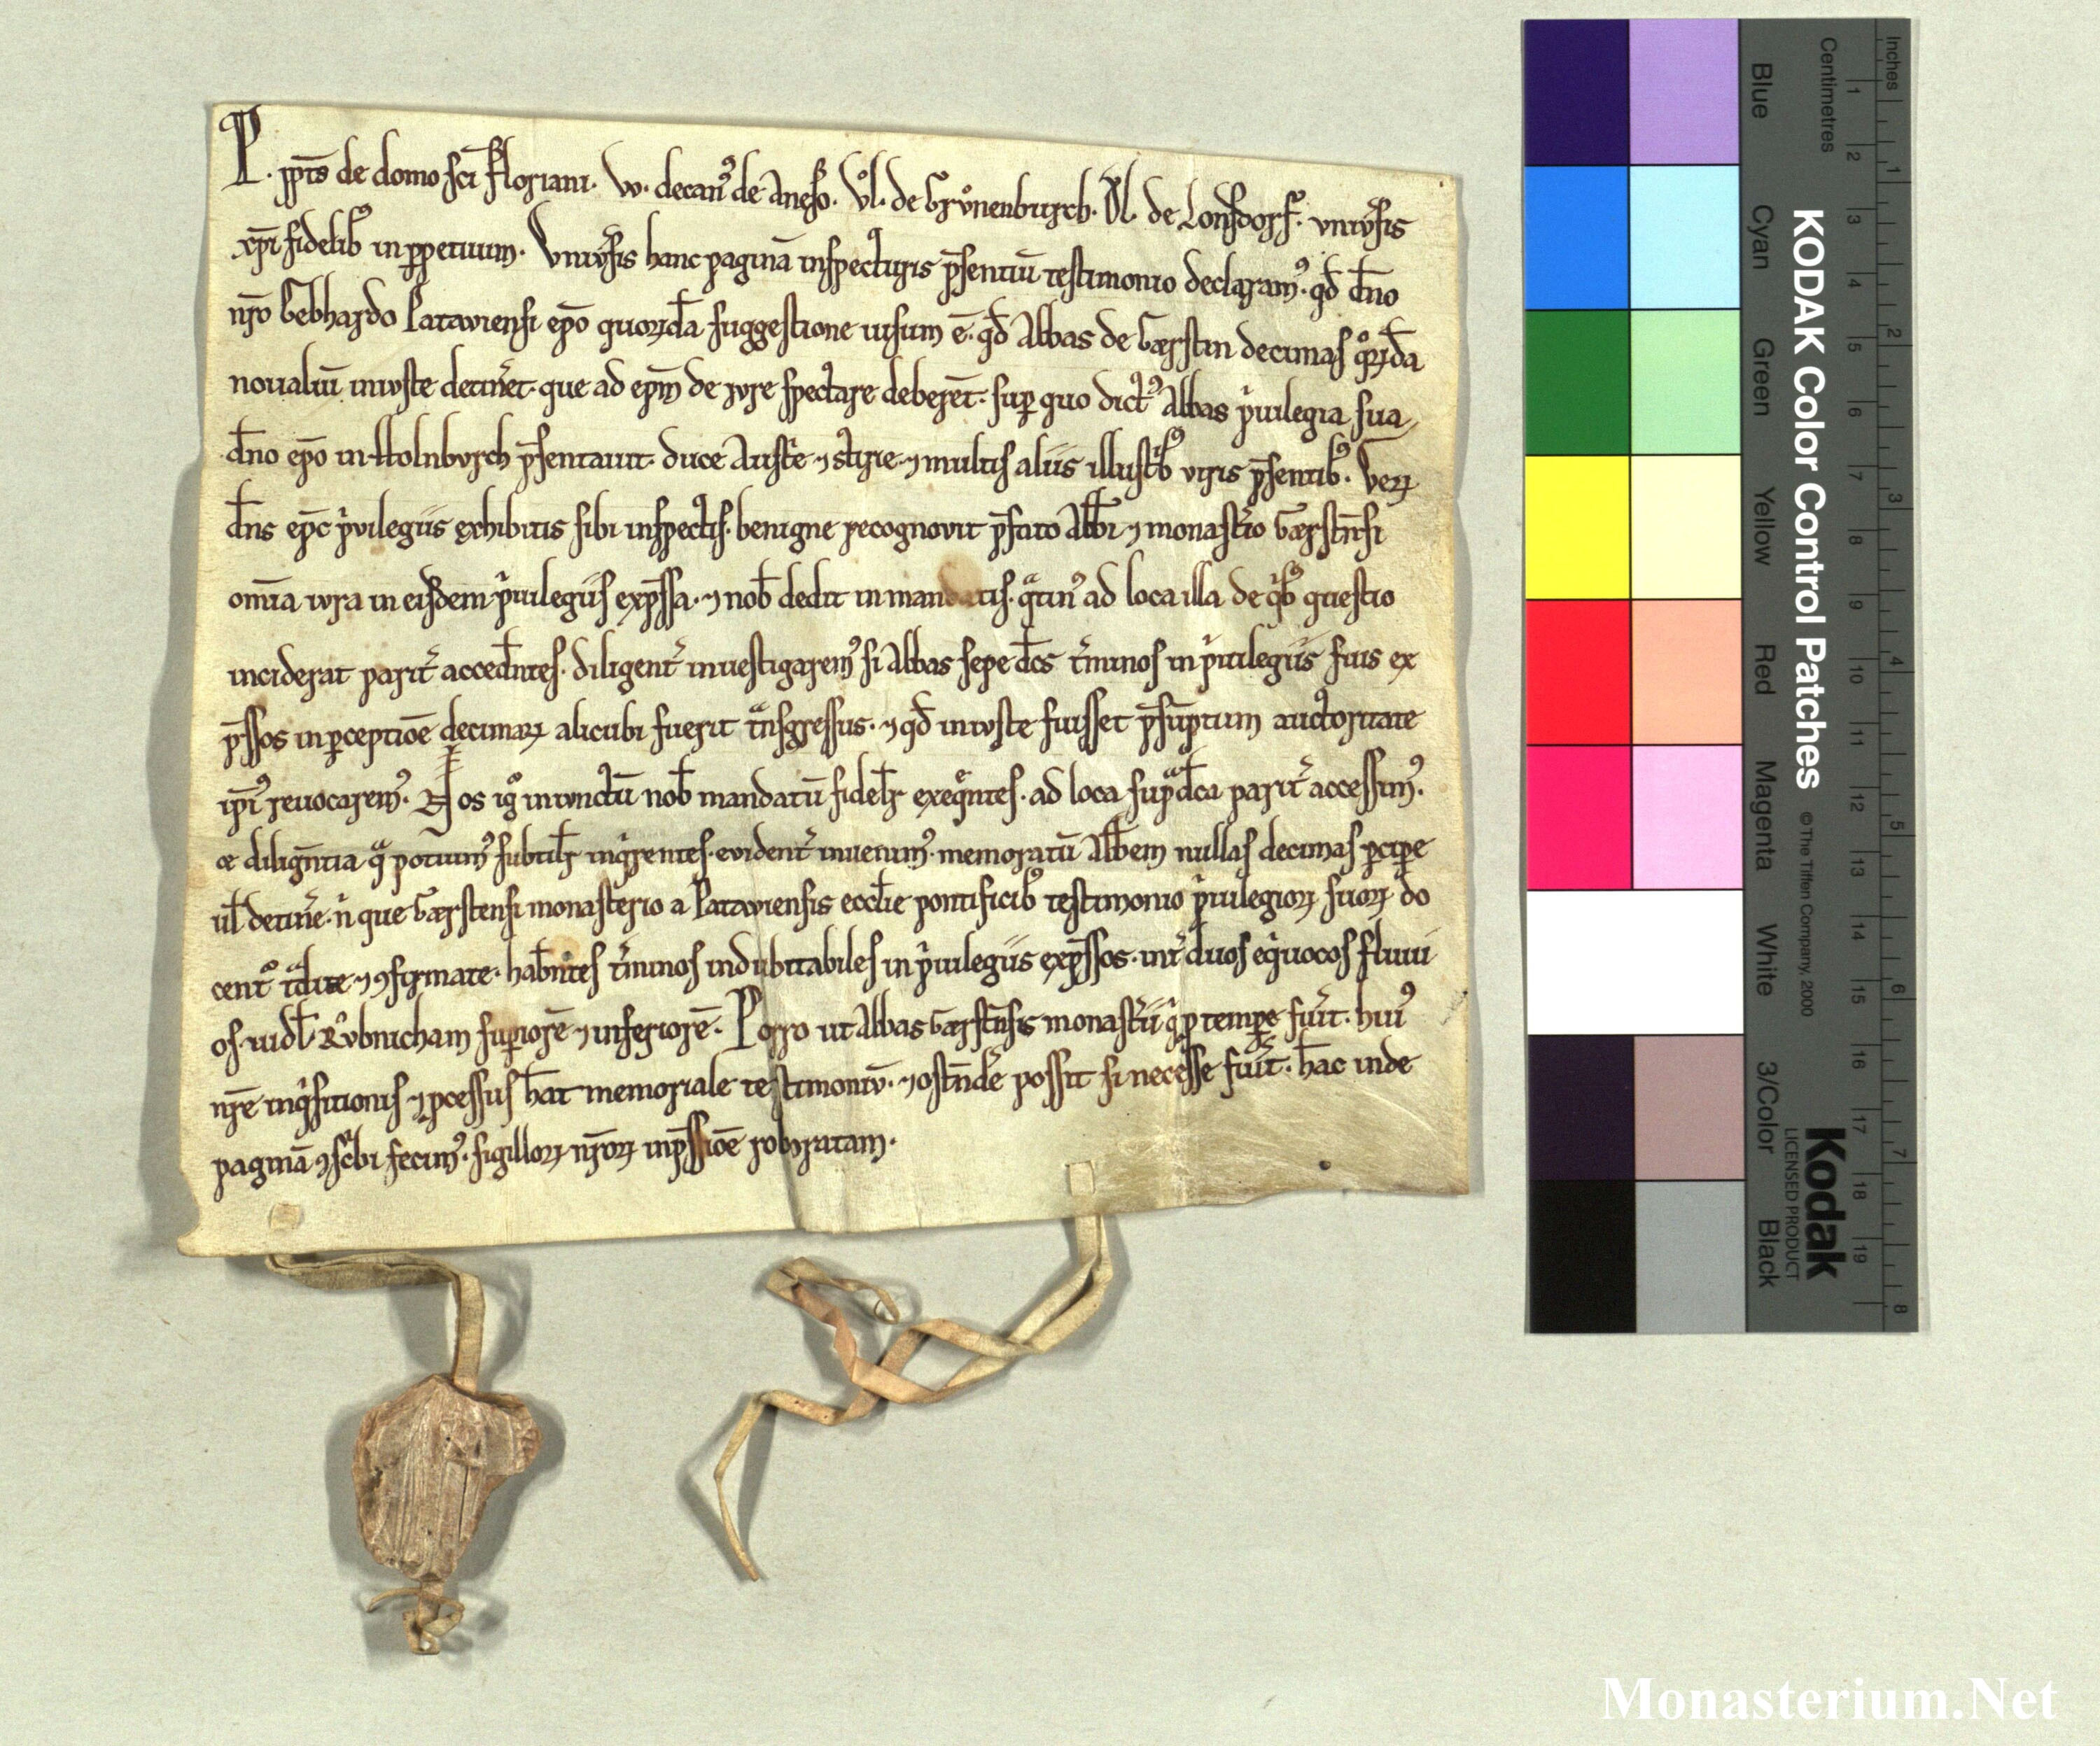 P. pp̄ts de domo sc̄i Floriani. W. decanꝰ de Aneso. Vͦl. de Grůnenburch. Vl. de Lonsdorf. vniv̾sis
xp̄i fidelibꝰ in ꝑpetuum. Vniv̾sis hanc paginā inspecturis p̄sentiū testimonio declaramꝰ. qd̄ dn̄o
nr̄o Gebhardo Patauiensi ep̄o quorūdā suggestione uisum ē. qd̄ Abbas de Gærstin decimas qͦrꝝdā
noualiū iniuste detin̾et. que ad ep̄m de iure spectare deberēt. suꝑ quo dictꝰ Abbas pͥuilegia sua
dn̄o ep̄o in Holnburch p̄sentauit. duce Austͥe ⁊ Styrie ⁊ multis aliis illustͥbꝰ viris p̄sentibꝰ. Veꝝ
dn̄s ep̄c pͥvilegiis exhibitis sibi inspectis. benigne recognovit p̄fato Abb̄i ⁊ monast̾io Gærstn̄si
om̄ia iura in eisdem pͥuilegiis exp̄ssa. ⁊ nob̄ dedit in mandatis. qͣtinꝰ ad loca illa de qͥbꝰ questio
inciderat parit̾ acced̄ntes. diligent̾ inuestigaremꝰ si Abbas sepe dc̄s t̾minos in pͥuilegiis suis ex
p̄ssos in ꝑceptiōe decimaꝝ alicubi fuerit tͣnsgressus. ⁊ qd̄ iniuste fuisset p̄sūptum auctoritate
ipīꝰ reuocaremꝰ. Nos igͦ iniunctū nob̄ mandatū fidelr̄ exeqͣntes. ad loca supͣdc̄a parit̾ accessimꝰ.
ac dilign̄tia qͣ potuimꝰ subtilr̄ inqͥrentes. evident̾ inuenimꝰ. memoratū Abb̄em nullas decimas ꝑciꝑe
ul̄ detin̾e. nͥ que Gærstensi monasterio a Patauiensis eccl̄ie pontificibꝰ testimonio pͥuilegioꝝ suoꝝ do
centͦ tͣdite ⁊ ꝯfirmate. hab̄ntes t̾minos indubitabiles in pͥuilegiis exp̄ssos. int̾ duos eqͥuocos fluui
os. uidl̄. Rv̊bnicham suꝑiorē ⁊ inferiorē. Porro ut Abbas Gærstn̄sis monast̾ii qͥ ꝓ tempe fu̾it. huiꝰ
nr̄e inqͥsitionis ⁊ ꝓcessus h̄at memoriale testimoniv̄. ⁊ ostn̄d̾e possit si necesse fu̾it. hāc inde
paginā ꝯscͥbi fecimꝰ. sigilloꝝ nr̄oꝝ inp̄ssiōe roboratam.
KODAK Color Control Patches
© The Tiffen Company, 2000
Kodak
LICENSED PRODUCT
Inches
Centimetres
Blue
Cyan
Green
Yellow
Red
Magenta
White
3/Color
Black
1 2 3 4 5 6 7 8 9 10 11 12 13 14 15 16 17 18 19
1 2 3 4 5 6 7 8
Monasterium.Net